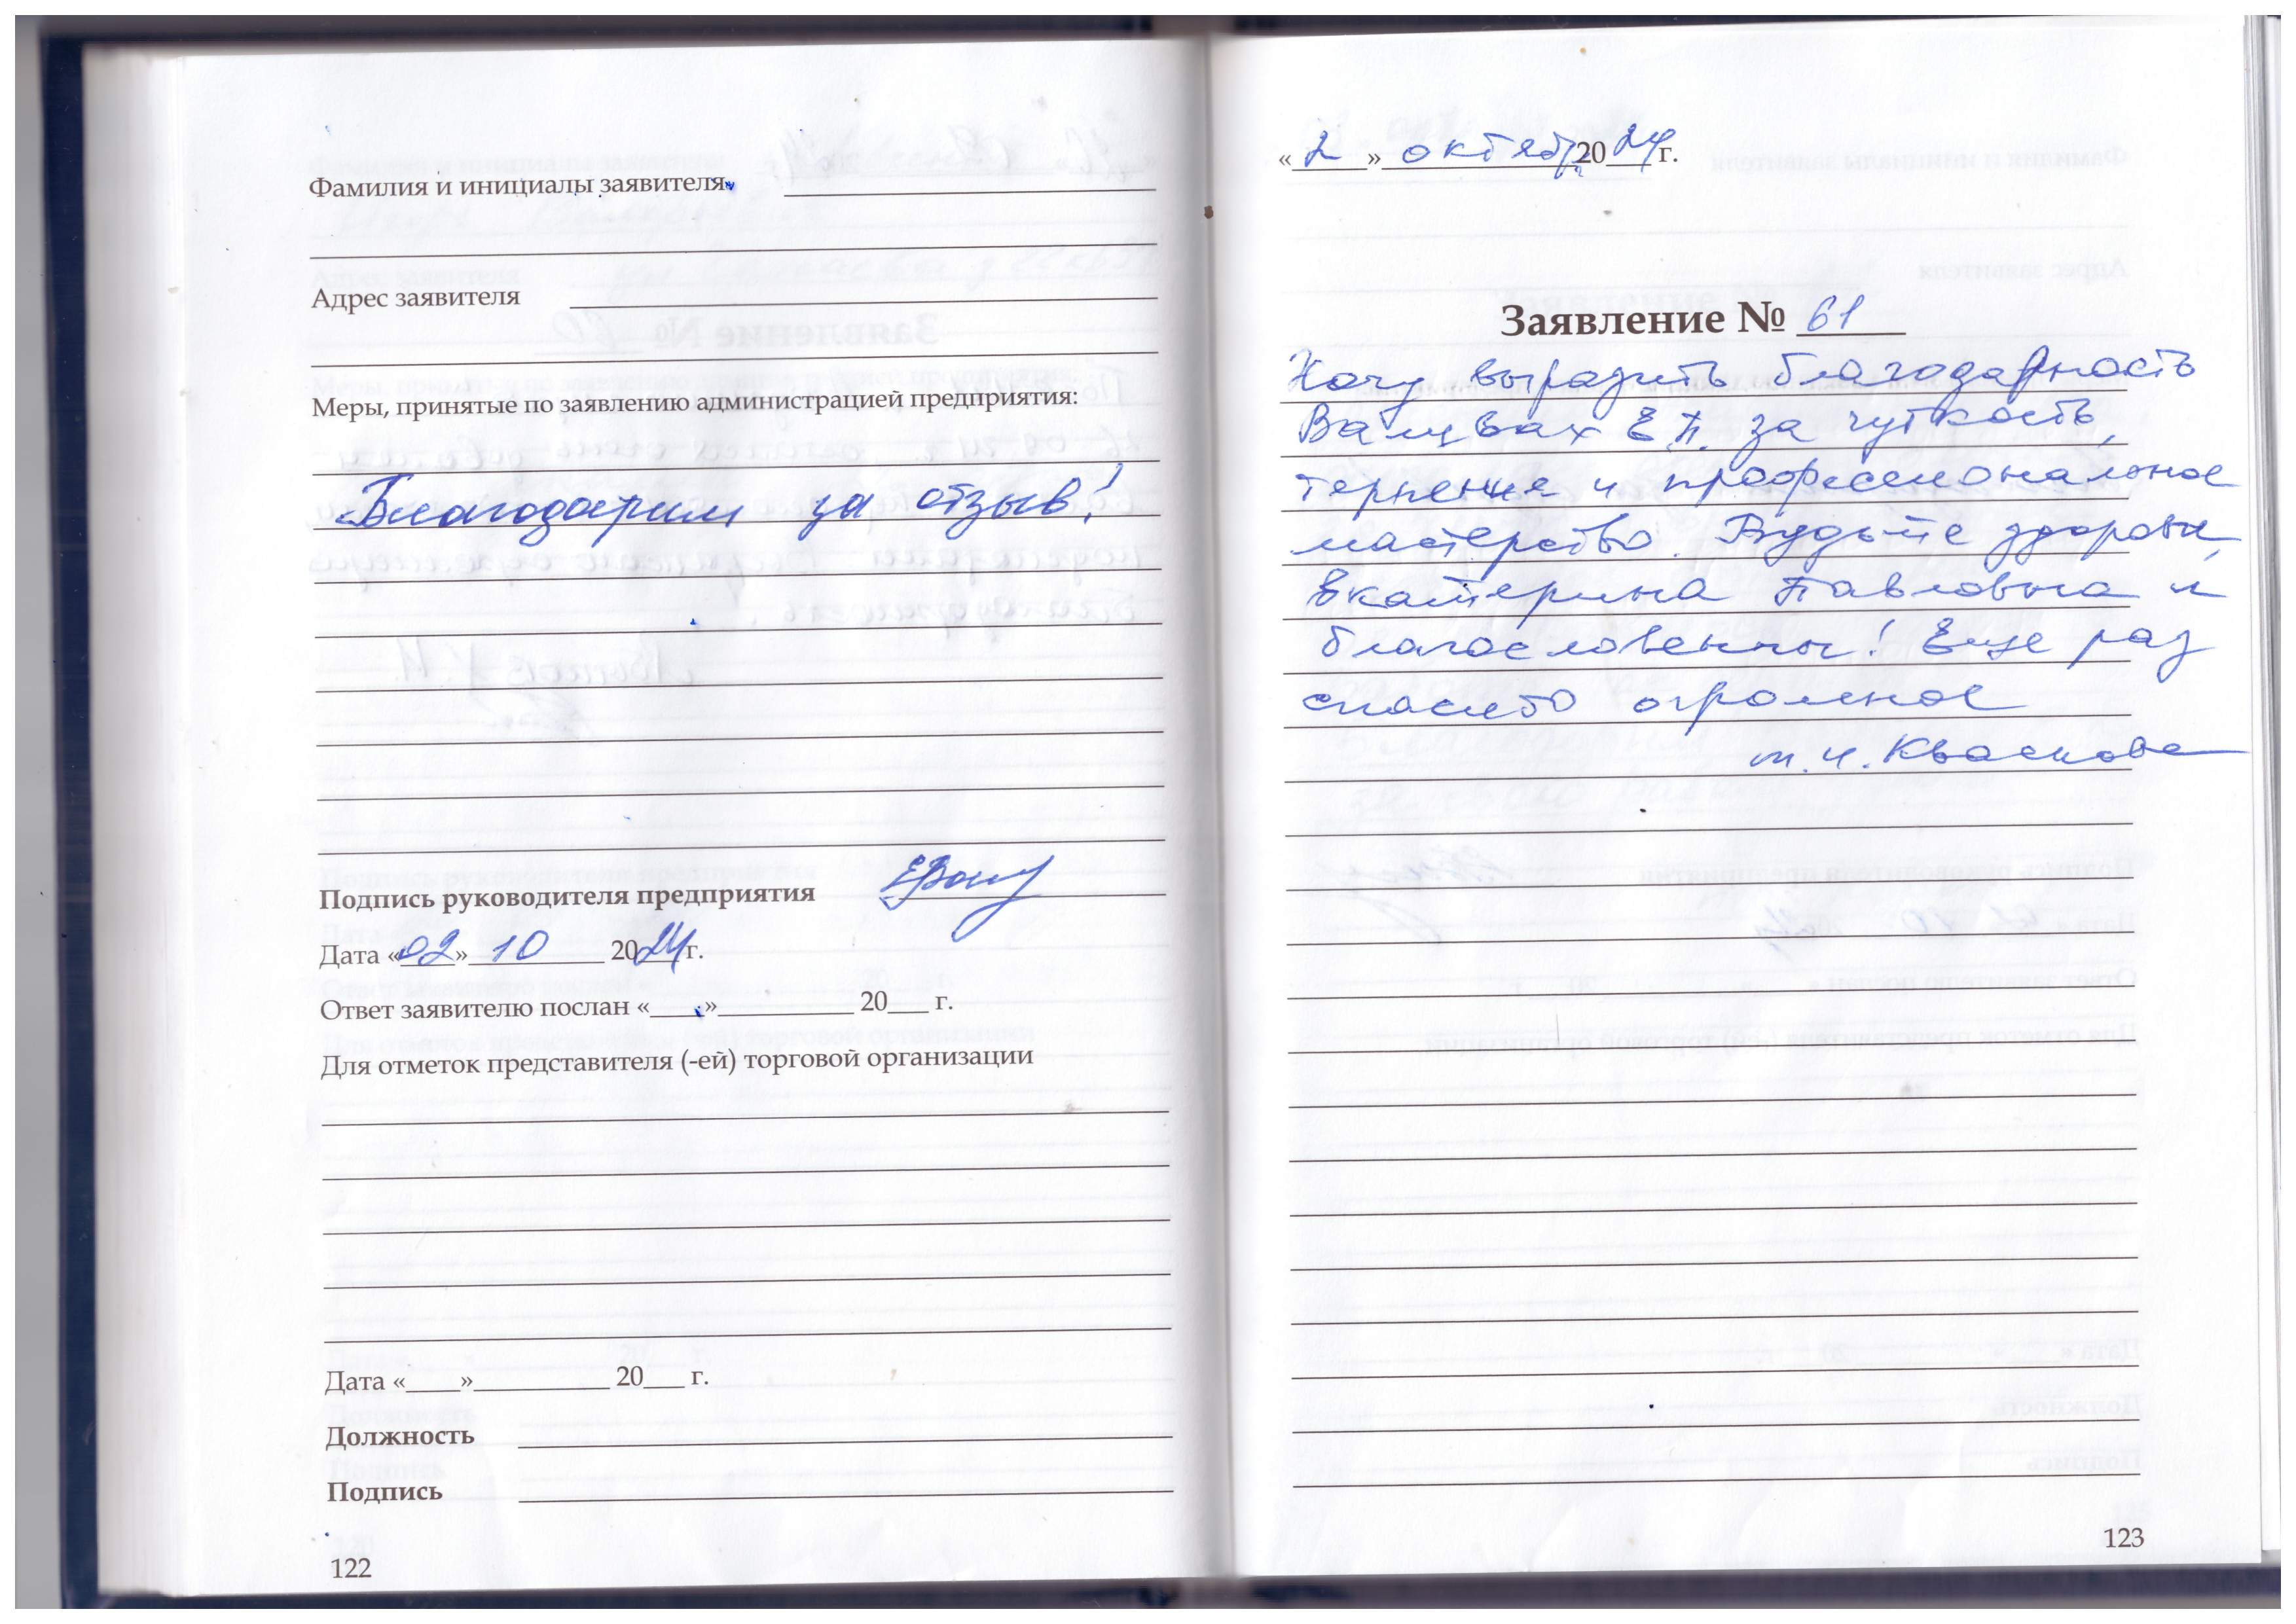 Фамилия и инициалы заявителя
Адрес заявителя
Меры, принятые по заявлению администрацией предприятия:
Благодарим за отзыв!
Подпись руководителя предприятия
Дата «02» 10 2024 г.
Ответ заявителю послан «____»__________ 20___ г.
Для отметок представителя (-ей) торговой организации
Дата «____»__________ 20___ г.
Должность
Подпись
122
«2» октябр 2024 г.
Заявление № 61
Хочу выразить благодарность
Е.П. за чуткость,
терпение и профессиональное
мастерство. Будьте здоровы,
Екатерина Павловна и
благословенны! Еще раз
спасибо огромное
123